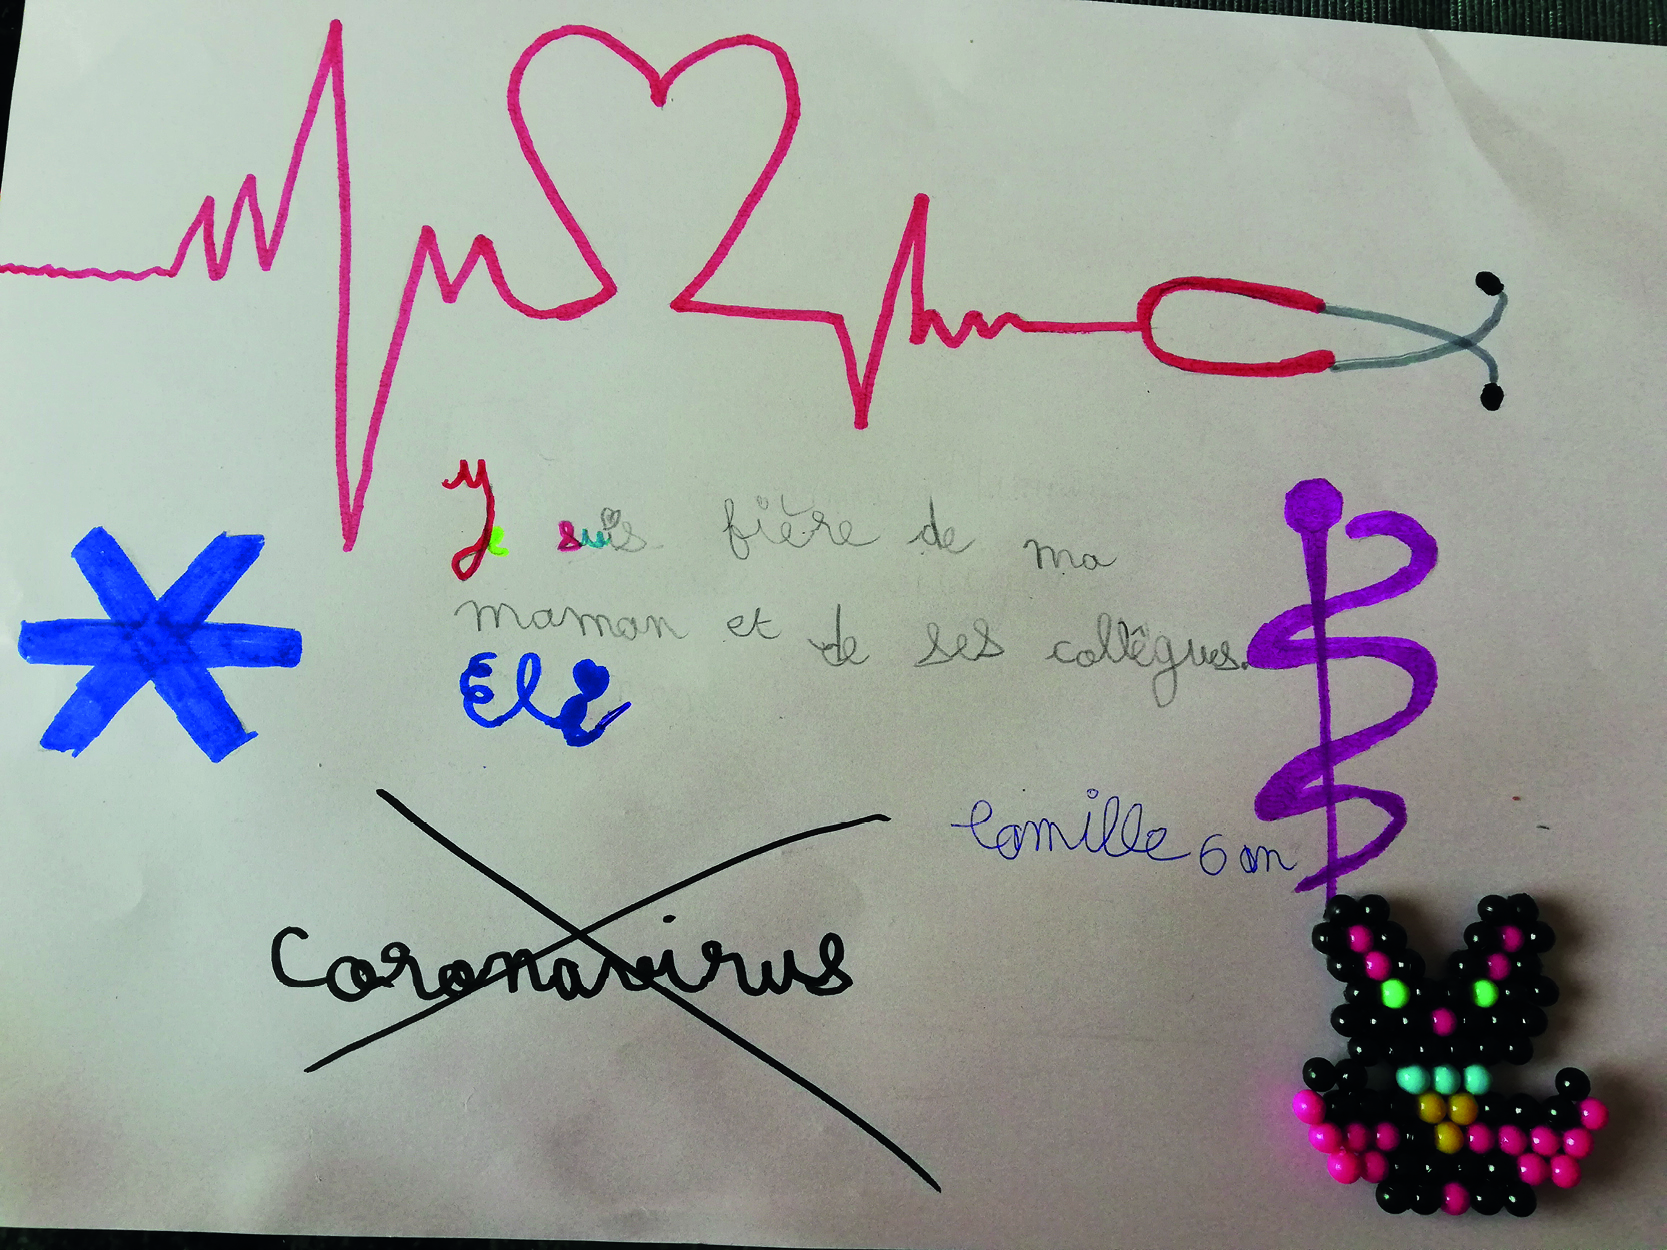 Je suis fière de ma
maman et de ses collègues.
Eli
Camille 6 an
Coronavirus